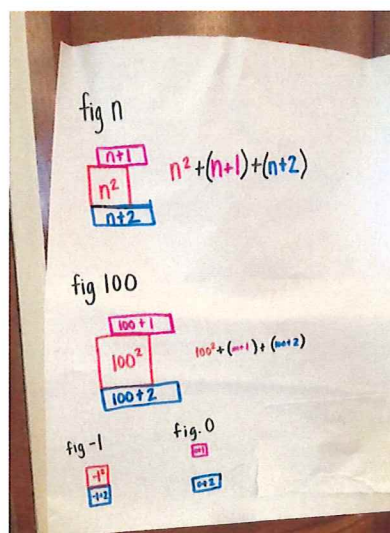 fig n
n+1
n² n²+(n+1)+(n+2)
n+2
fig 100
100+1
100² 100²+(100+1)+(100+2)
100+2
fig -1 fig. 0
-1² 0+1
-1+2 0+2